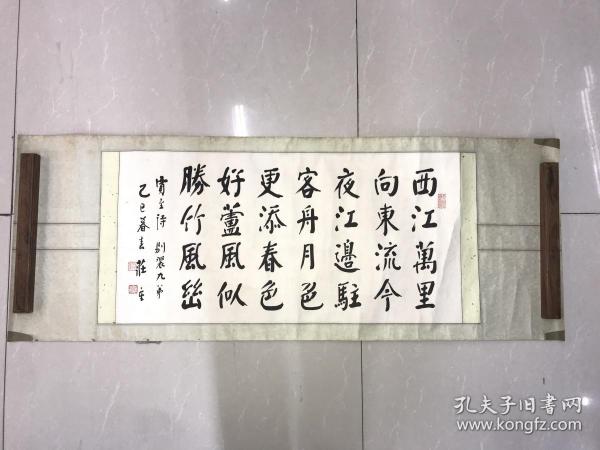 西江萬里
向東流今
夜江邊駐
客舟月色
更添春色
好蘆風似
勝竹風幽
賈至詩 別裴九弟
巳暮春 莊
孔夫子旧书网
www.kongfz.com